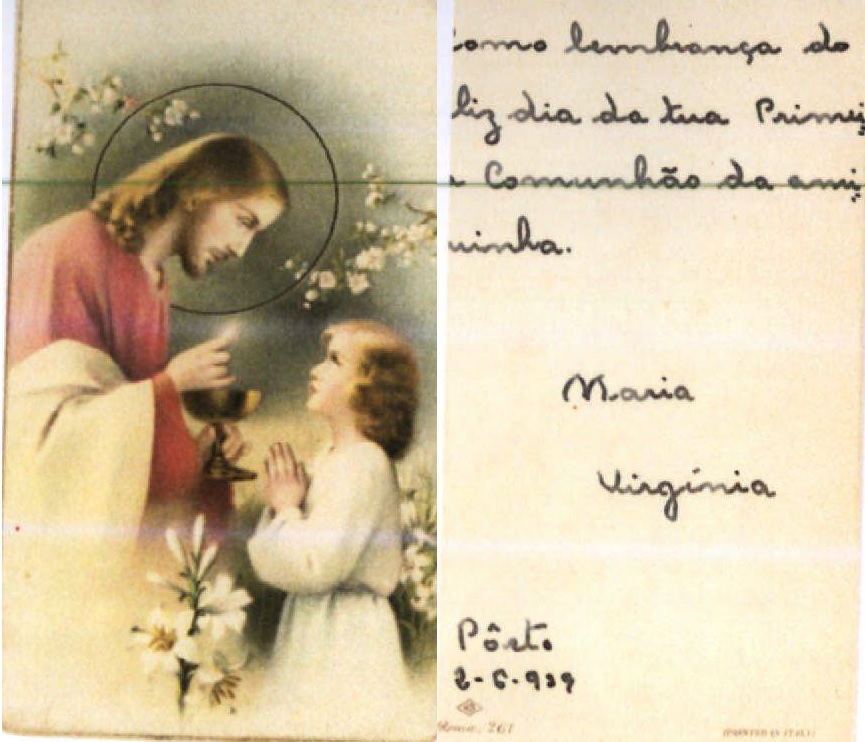 Como lembrança do
liz dia da tua Primei
a Comunhão da ami
uinha.
Maria
Virgínia
Pôrto
2-6-939
Roma, 261
(PRINTED IN ITALY)